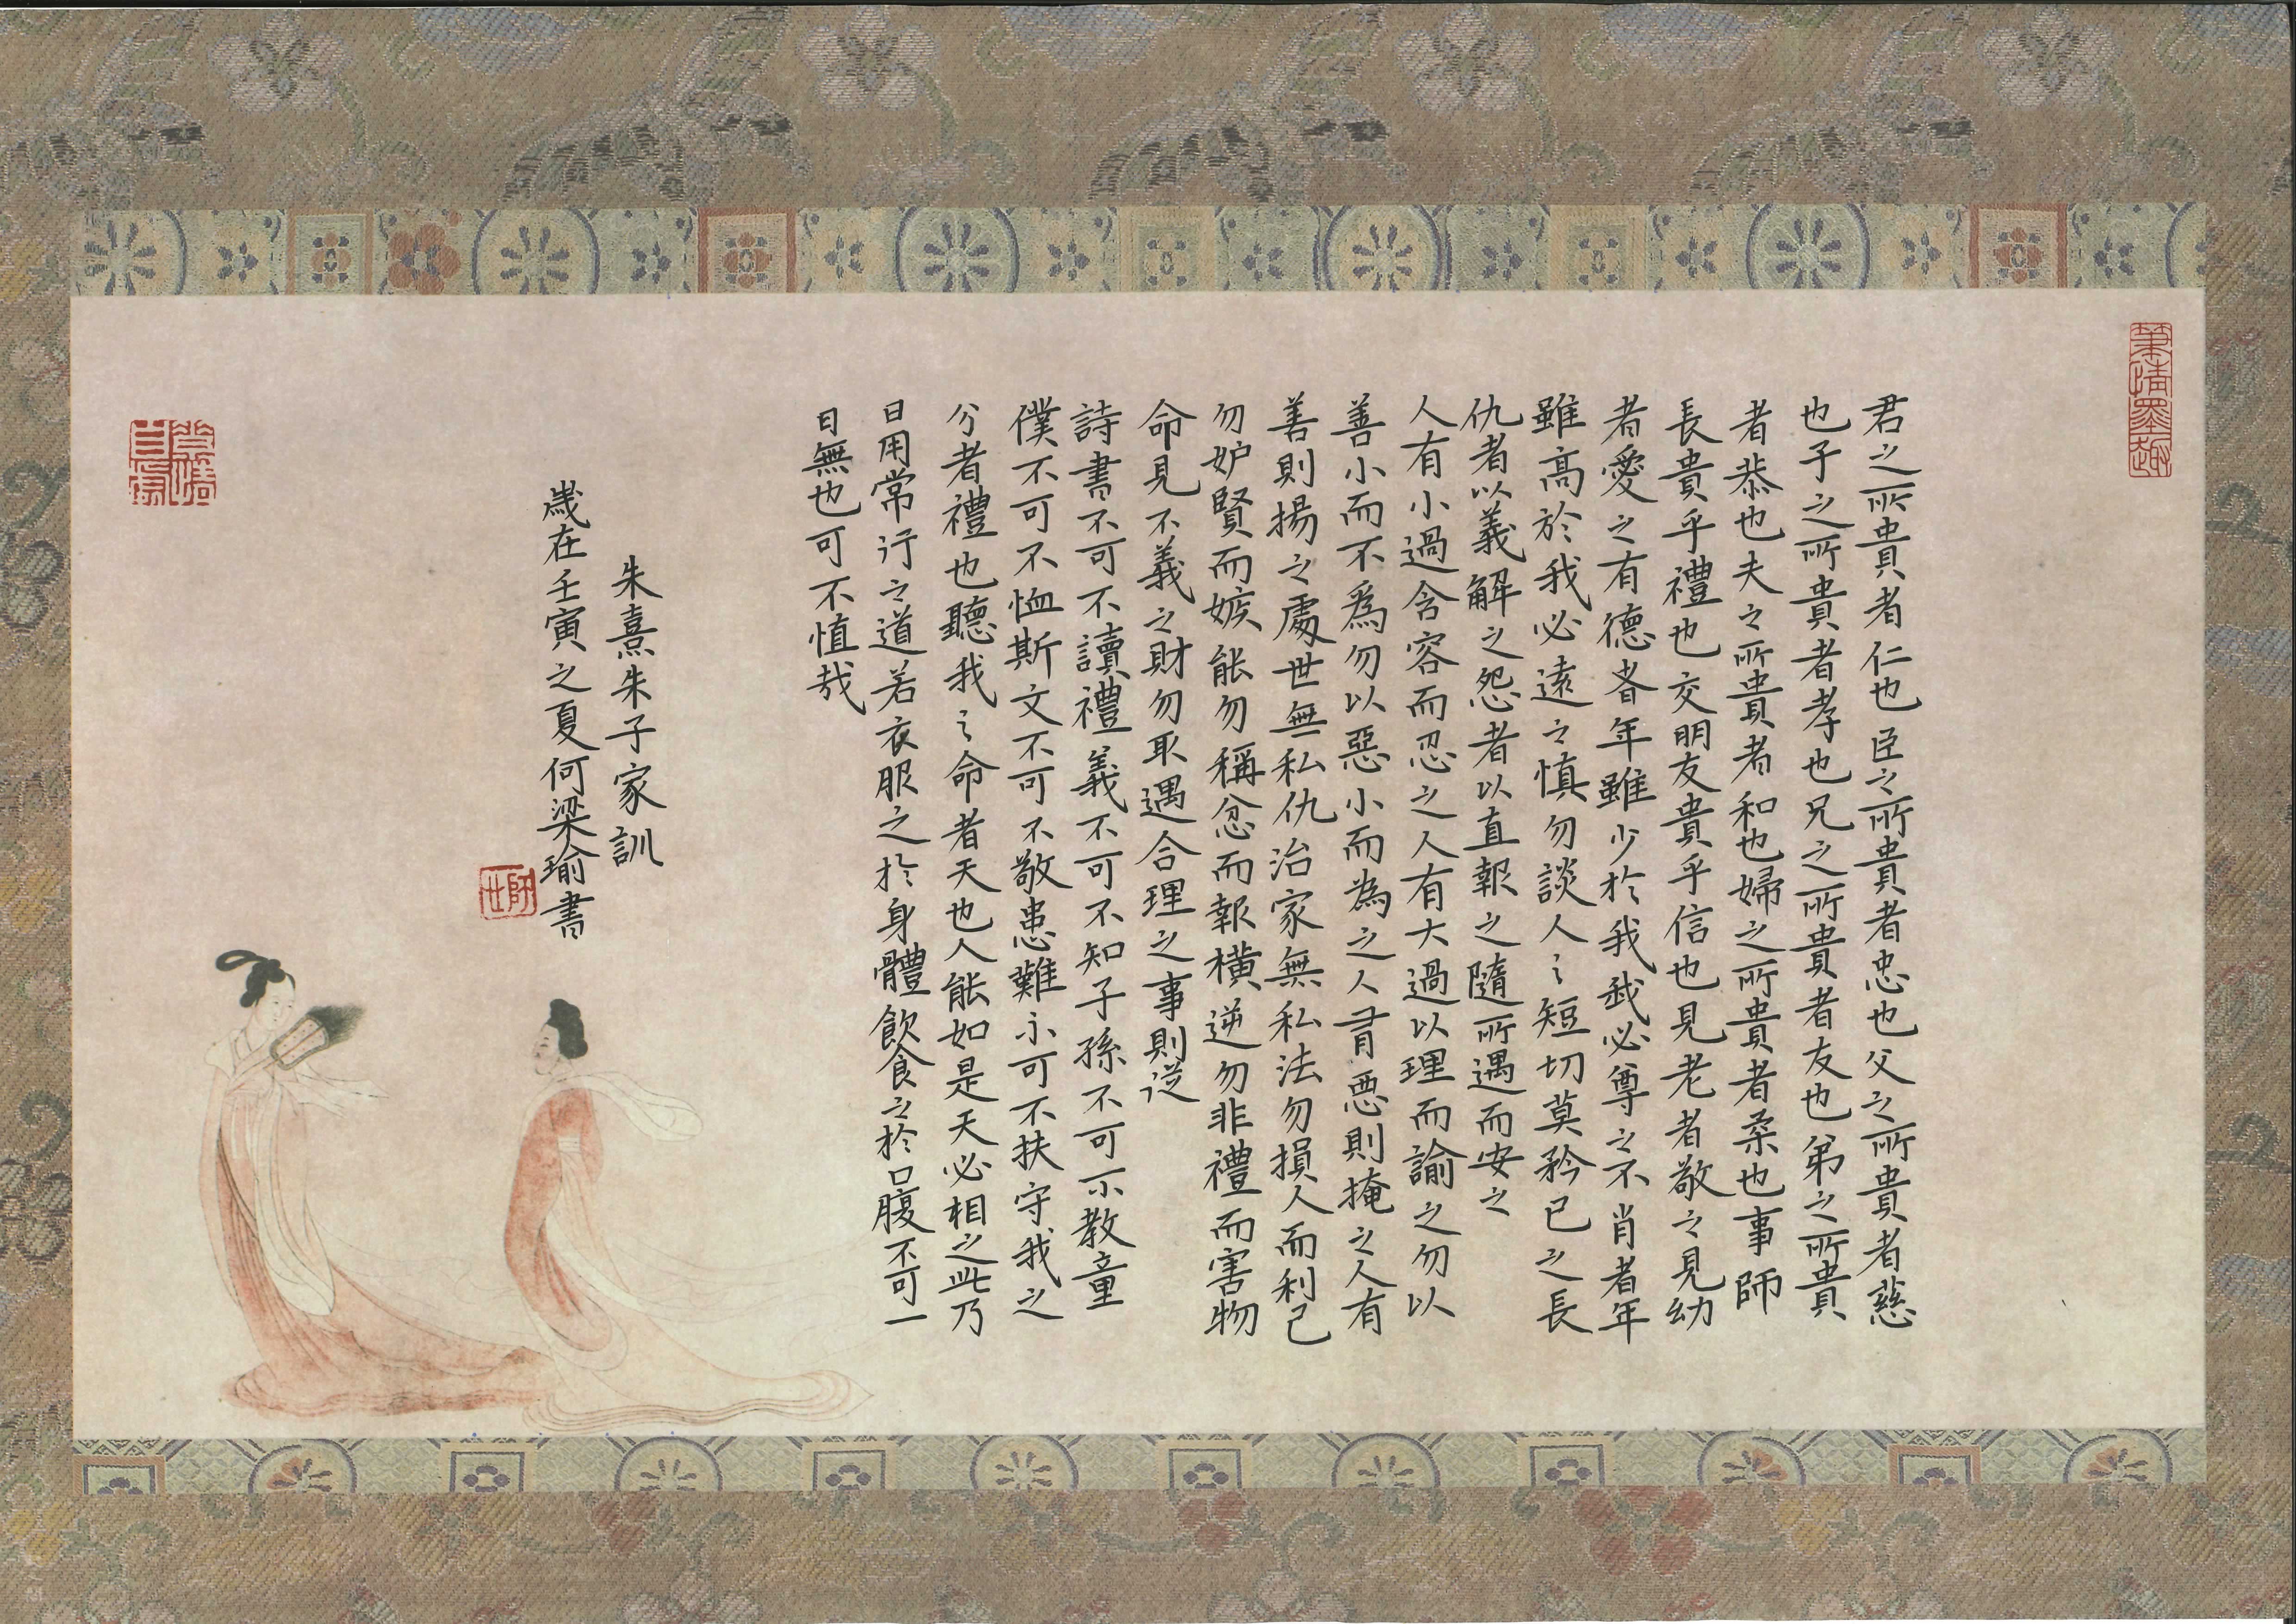 筆情墨趣
君之所貴者仁也臣之所貴者忠也父之所貴者慈
也子之所貴者孝也兄之所貴者友也弟之所貴
者恭也夫之所貴者和也婦之所貴者柔也事師
長貴乎禮也交朋友貴乎信也見老者敬之見幼
者愛之有德者年雖少於我我必尊之不肖者年
雖高於我必遠之慎勿談人之短切莫矜己之長
仇者以義解之怨者以直報之隨所遇而安之
人有小過含容而忍之人有大過以理而諭之勿以
善小而不為勿以惡小而為之人有惡則掩之人有
善則揚之處世無私仇治家無私法勿損人而利己
勿妒賢而嫉能勿稱忿而報橫逆勿非禮而害物
命見不義之財勿取遇合理之事則從
詩書不可不讀禮義不可不知子孫不可不教童
僕不可不恤斯文不可不敬患難不可不扶守我之
分者禮也聽我之命者天也人能如是天必相之此乃
日用常行之道若衣服之於身體飲食之於口腹不可一
日無也可不慎哉
朱熹朱子家訓
歲在壬寅之夏何梁瑜書
師世